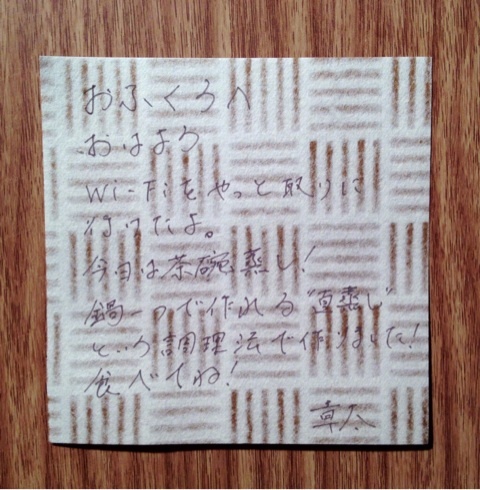 おふくろへ
おはよう
Wi-Fiをやっと取りに
行けたよ。
今日は茶碗蒸し!
鍋一つで作れる"直蒸し"
という調理法で作りました!
食べてね!
章太